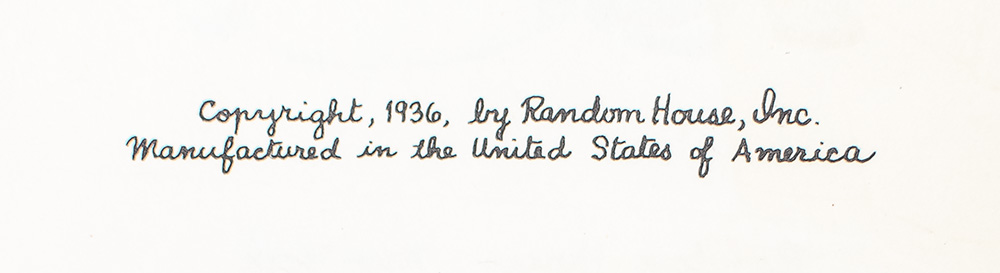 Copyright, 1936, by Random House, Inc.
Manufactured in the United States of America